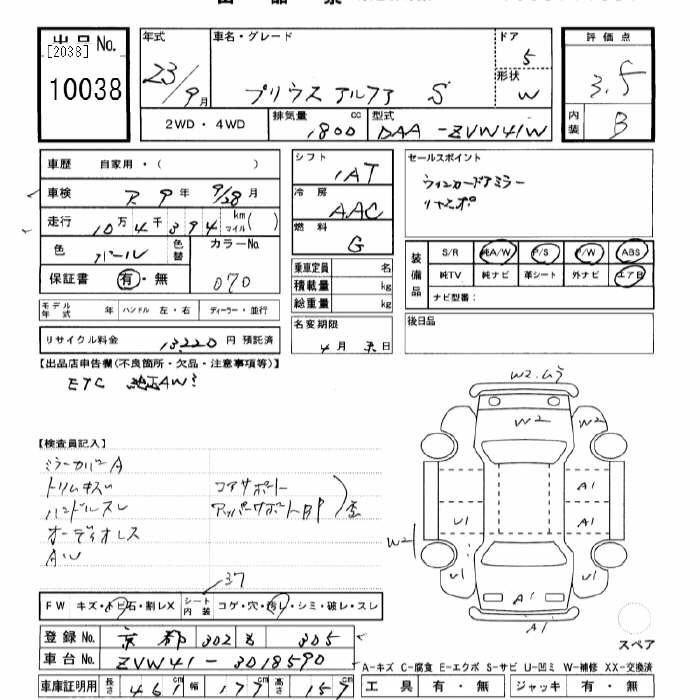 出品No.
[2038]
10038
年式
23/9月
車名・グレード
プリウス アルファ S
ドア
5
形状
W
評価点
3.5
内装
B
2WD・4WD
排気量 cc
1800
型式
DAA-ZVW41W
車歴 自家用・( )
車検 R9年 9/28月
走行 10万4千394 km マイル( )
色 パール 色替
カラーNo.
070
保証書 有・無
シフト
IAT
冷房
AAC
燃料
G
セールスポイント
ウィンカードアミラー
装備品
S/R 純A/W P/S P/W ABS
純TV 純ナビ 革シート 外ナビ エアB
ナビ型番:
乗車定員 名
積載量 kg
総重量 kg
モデル年式 年 ハンドル 左・右 ディーラー・並行
リサイクル料金 13220円 預託済
名変期限
4月末日
後日品
【出品店申告欄(不良箇所・欠品・注意事項等)】
ETC 純正AW
W2
W2
W2
A1
A1
U1
W2
U1
U1
A1
A1
【検査員記入】
ミラーカバーA
トリムキズ
ハンドルスレ
オーディオレス
AW
コアサポート
アッパーサポート
歪
37
FW キズ・トビ石・割レX シート内装 コゲ・穴・汚レ・シミ・破レ・スレ
登録No. 京都 302 305
車台No. ZVW41-3018590
車庫証明用 長さ 461 幅 177 高さ 157
スペア
A-キズ C-腐食 E-エクボ S-サビ U-凹ミ W-補修 XX-交換済
工具 有・無 ジャッキ 有・無